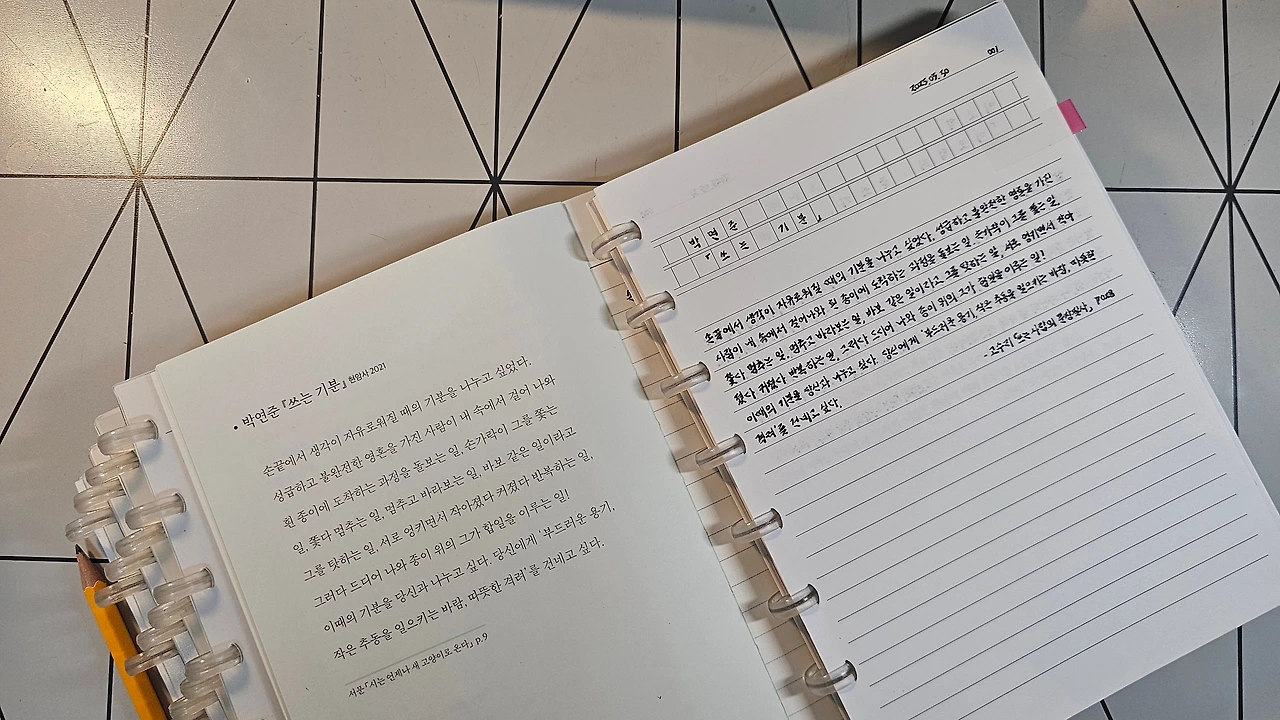 • 박연준 『쓰는 기분』 현암사 2021
손끝에서 생각이 자유로워질 때의 기분을 나누고 싶었다.
성급하고 불완전한 영혼을 가진 사람이 내 속에서 걸어 나와
흰 종이에 도착하는 과정을 돌보는 일, 손가락이 그를 쫓는
일, 쫓다 멈추는 일, 멈추고 바라보는 일, 바보 같은 일이라고
그를 탓하는 일, 서로 엉키면서 작아졌다 커졌다 반복하는 일,
그러다 드디어 나와 종이 위의 그가 합일을 이루는 일!
이때의 기분을 당신과 나누고 싶다. 당신에게 '부드러운 용기,
작은 추동을 일으키는 바람, 따뜻한 격려'를 건네고 싶다.
서문 「시는 언제나 새 고양이로 온다」 p.9
001
2025.05.30
박연준
『쓰는 기분』
손끝에서 생각이 자유로워질 때의 기분을 나누고 싶었다. 성급하고 불완전한 영혼을 가진
사람이 내 속에서 걸어나와 흰 종이에 도착하는 과정을 돌보는 일, 손가락이 그를 쫓는 일,
쫓다 멈추는 일, 멈추고 바라보는 일, 바보 같은 일이라고 그를 탓하는 일, 서로 엉키면서 작아
졌다 커졌다 반복하는 일, 그러다 드디어 나와 종이 위의 그가 합일을 이루는 일!
이때의 기분을 당신과 나누고 싶다. 당신에게 '부드러운 용기, 작은 추동을 일으키는 바람, 따뜻한
격려'를 건네고 싶다.
- 고수리 『쓰는 사람의 문장필사』 p028